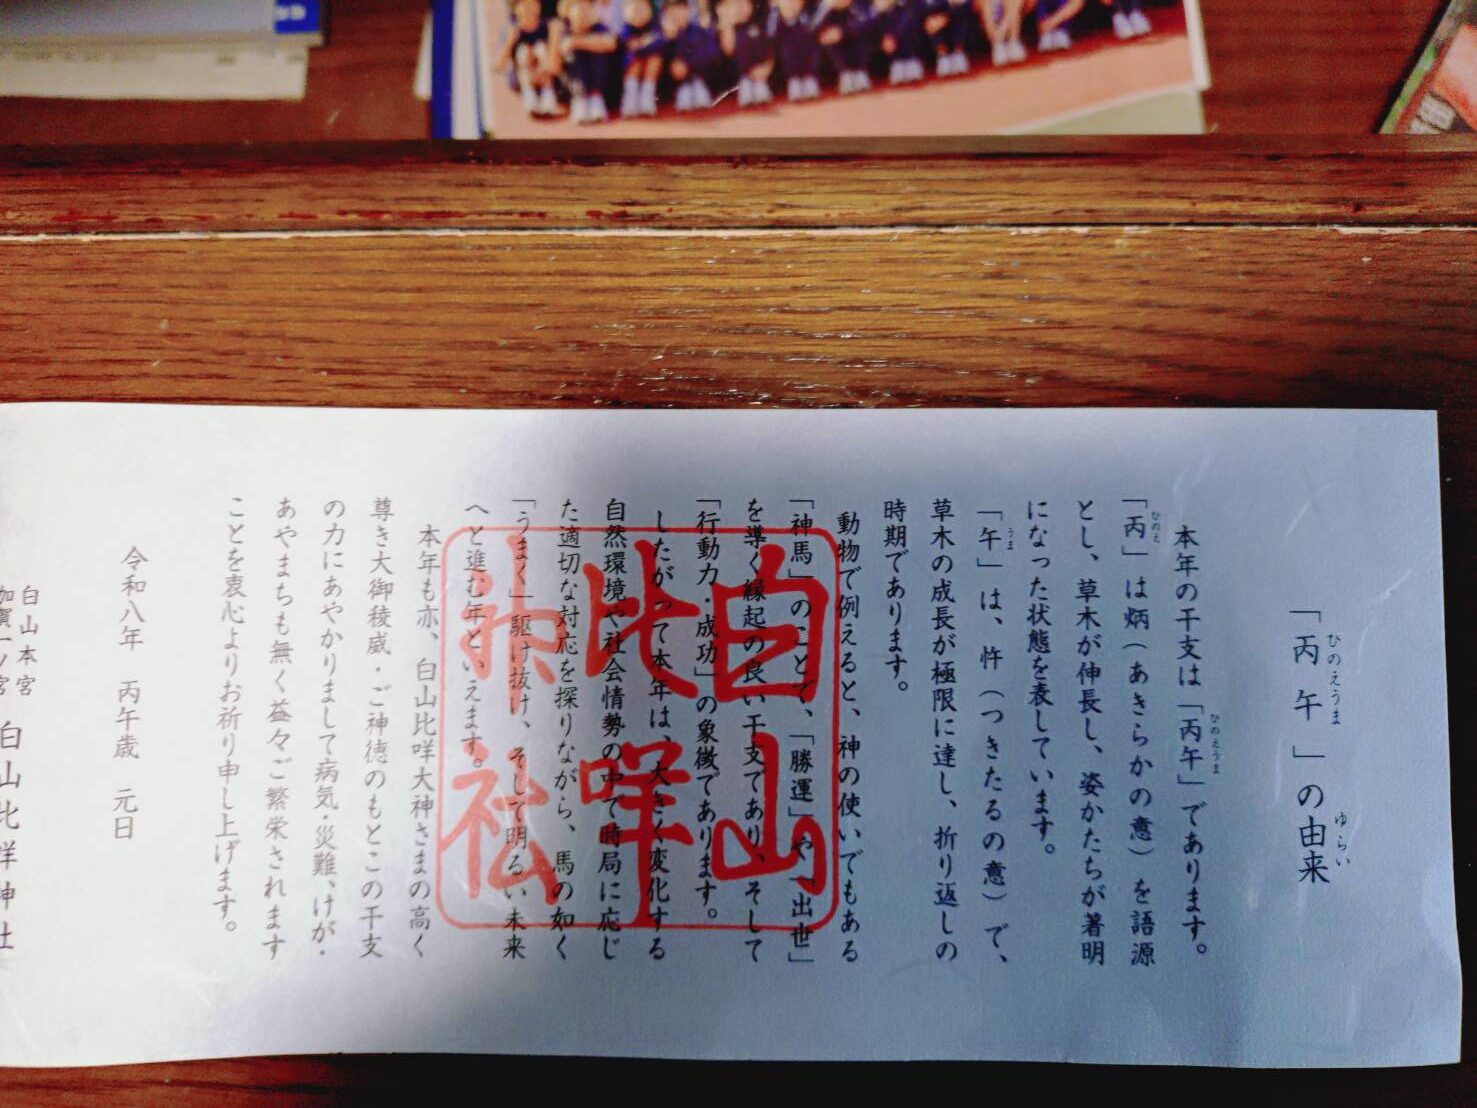 「丙午」の由来
本年の干支は「丙午」であります。
「丙」は炳(あきらかの意)を語源
とし、草木が伸長し、姿かたちが著明
になった状態を表しています。
「午」は、忤(つきたるの意)で、
草木の成長が極限に達し、折り返しの
時期であります。
動物で例えると、神の使いでもある
「神馬」のことで、「勝運」や「出世」
を導く縁起の良い干支であり、そして
「行動力・成功」の象徴であります。
したがって本年は、大きく変化する
自然環境や社会情勢の中で時局に応じ
た適切な対応を探りながら、馬の如く
「うまく」駆け抜け、そして明るい未来
へと進む年といえます。
本年も亦、白山比咩大神さまの高く
尊き大御稜威・ご神徳のもとこの干支
の力にあやかりまして病気・災難、けが・
あやまちも無く益々ご繁栄されます
ことを衷心よりお祈り申し上げます。
令和八年 丙午歳 元日
白山本宮
加賀一ノ宮
白山比咩神社
白山
比咩
神社